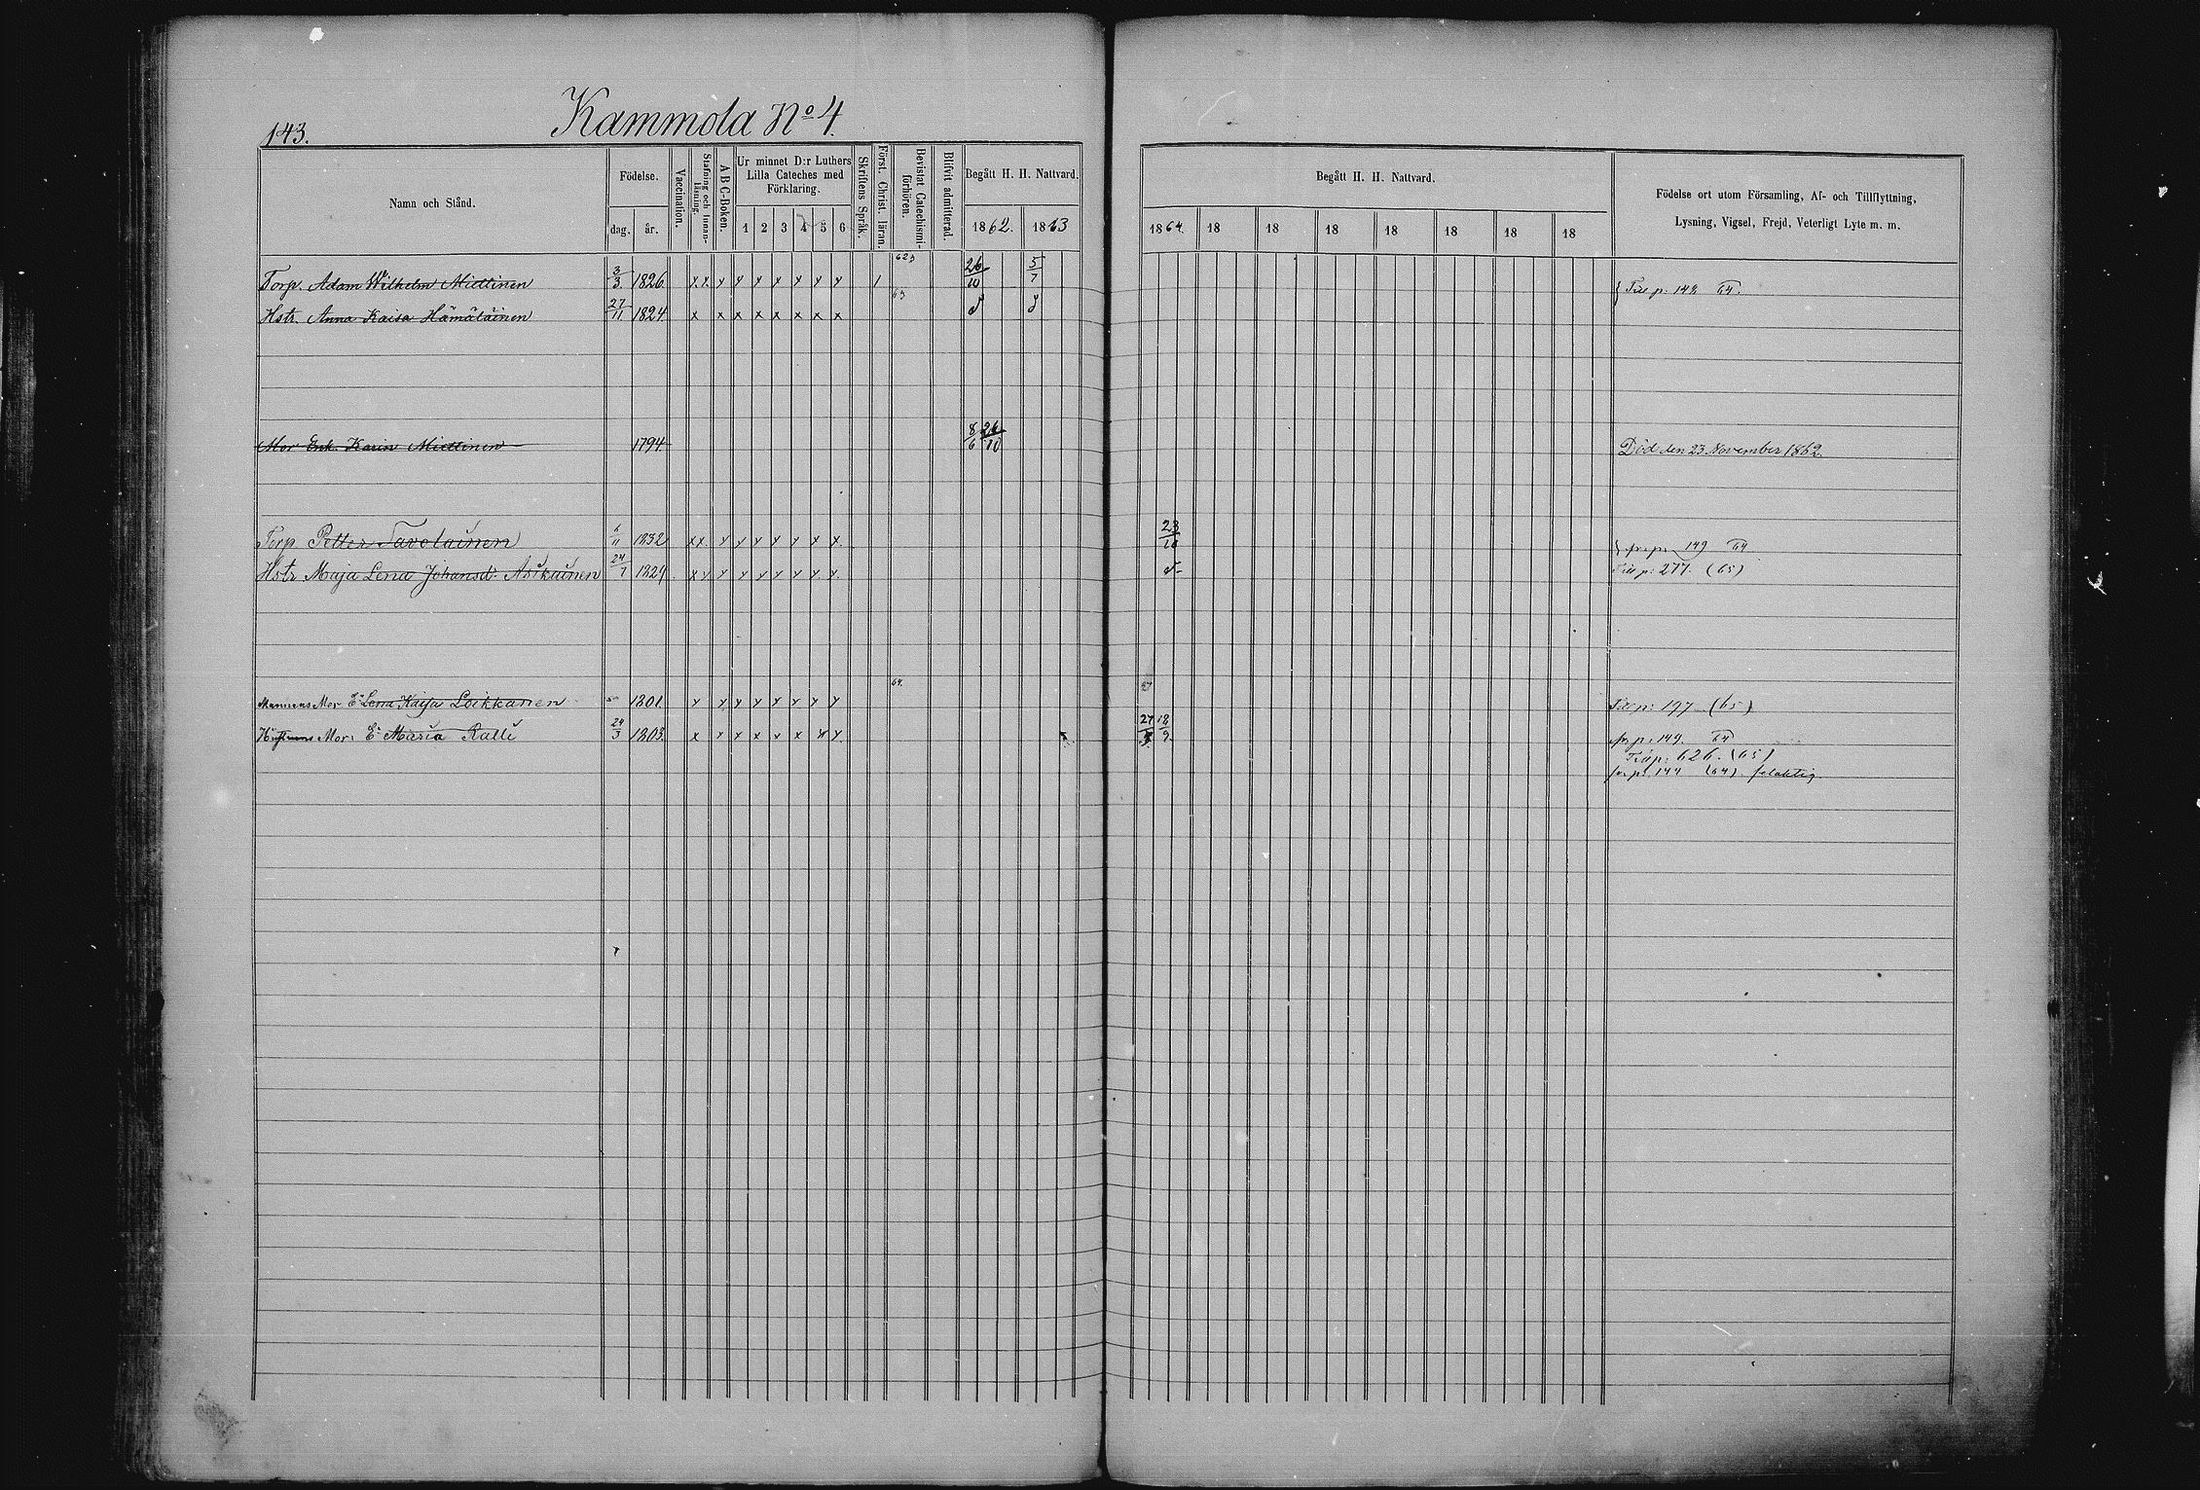 143.
Kammola No 4.
Namn och Stånd.
Födelse.
dag. år.
Vaccination.
Stafning och Innan-
läsning.
A B C-Boken.
Ur minnet D:r Luthers
Lilla Cateches med
Förklaring.
1 2 3 4 5 6
Skriftens Språk.
Först. Christ. läran.
Bevistat Catechismi-
förhören.
Blifvit admitterad.
Begått H. H. Nattvard.
1862. 1863
Begått H. H. Nattvard.
1864. 18 18 18 18 18 18 18
Födelse ort utom Församling, Af- och Tillflyttning,
Lysning, Vigsel, Frejd, Veterligt Lyte m. m.
Torp. Adam Wilhelm Miettinen 3/3 1826. x x y y y x y y y 1 623 26/10 5/7
Hstr. Anna Kaisa Hämäläinen 27/11 1824. x x x x x x x x 63
} Till p. 142 64.
Mor Enk. Karin Miettinen 1794. 8/6 26/10 Död den 23 November 1862.
Torp Petter Tavolainen 6/11 1832 x x. y y y y y x x. 23/10 } fr. p. 149 64
Hstr Maja Lena Johansd. Asikainen 24/7 1829. x y y y y y y y y. Till p. 277. (65)
Mannens Mor E. Lena Kaisa Loikkanen 1801. y y y y y y y y 64. Till p. 197 (65)
Hustruns Mor. E. Maria Ralli 24/3 1803. x y y x x x y y. 18/9. fr. p. 149. 64
Till p. 626. (65)
fr. p. 144 (64) felaktig